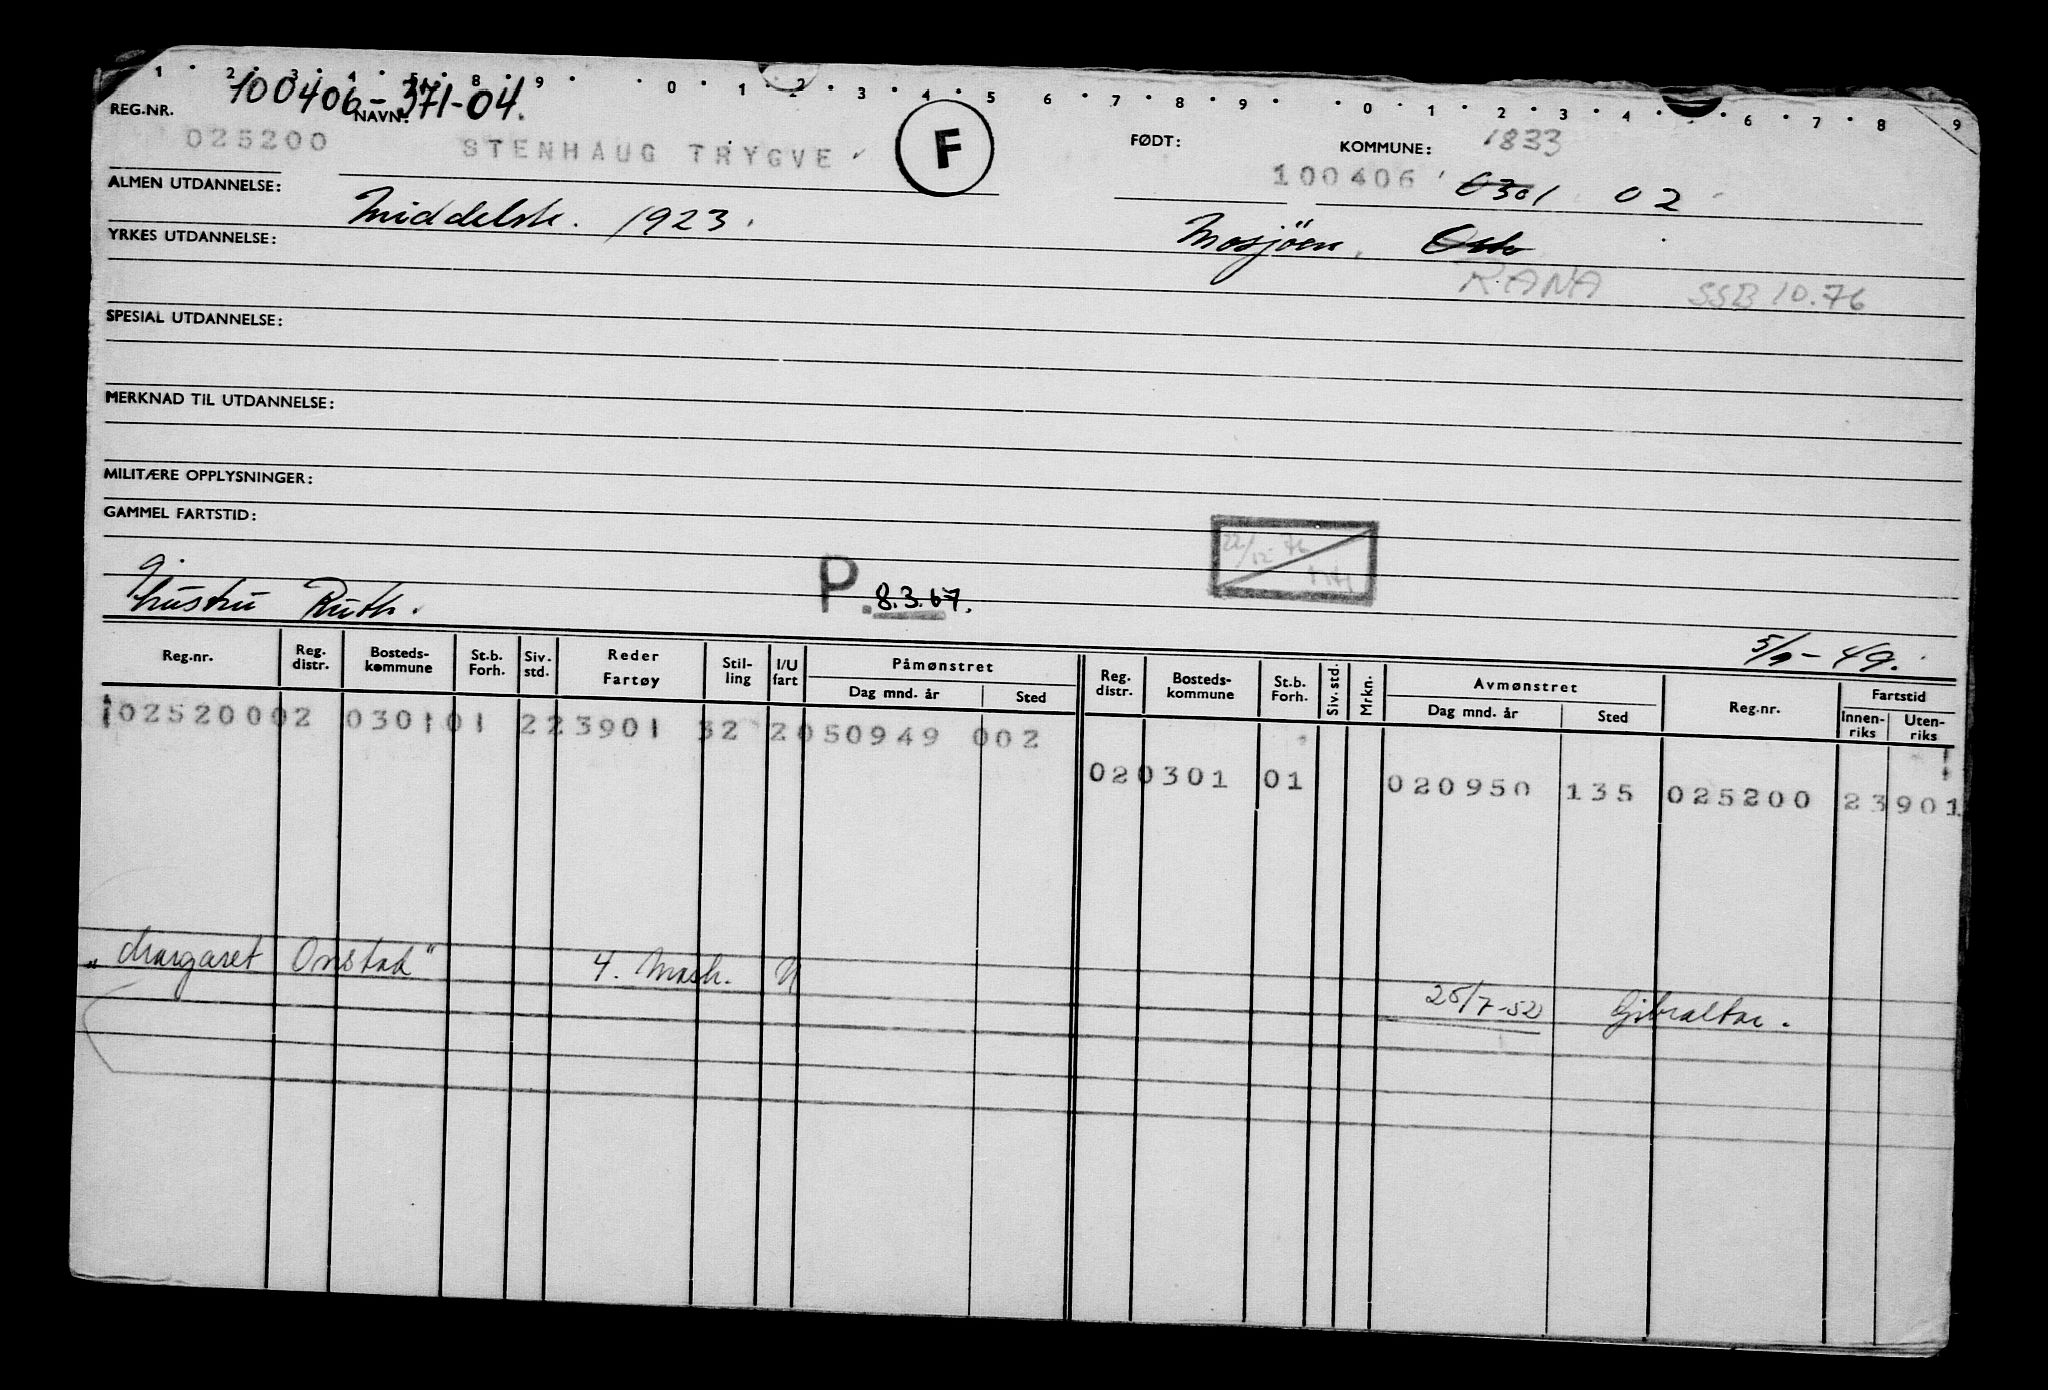 1 2 3 4 5 8 9 0 1 2 3 4 5 6 7 8 9 0 1 2 3 4 6 7 8 9
REG.NR. 100406-371-04. NAVN:
025200 STENHAUG TRYGVE F FØDT: 100406 KOMMUNE: 1833
0301 02
ALMEN UTDANNELSE: Middelsk. 1923. Mosjöen. Oslo
YRKES UTDANNELSE:
RANA SSB 10.76
SPESIAL UTDANNELSE:
MERKNAD TIL UTDANNELSE:
MILITÆRE OPPLYSNINGER:
GAMMEL FARTSTID:
22/12-76
g.
hustru Ruth. P. 8.3.67.
5/9-49.
Reg.nr. Reg. distr. Bosteds-kommune St.b. Forh. Siv. std. Reder Fartøy Stil-ling I/U fart Påmønstret Dag mnd. år Sted Reg. distr. Bosteds-kommune St.b. Forh. Siv. std. Mrkn. Avmønstret Dag mnd. år Sted Reg.nr. Fartstid Innen-riks Uten-riks
102520002 030101 223901 32 2050949 002
020301 01 020950 135 025200 23901
„Margaret Onstad" 4. Mask. U
25/7-52 Gibraltar.